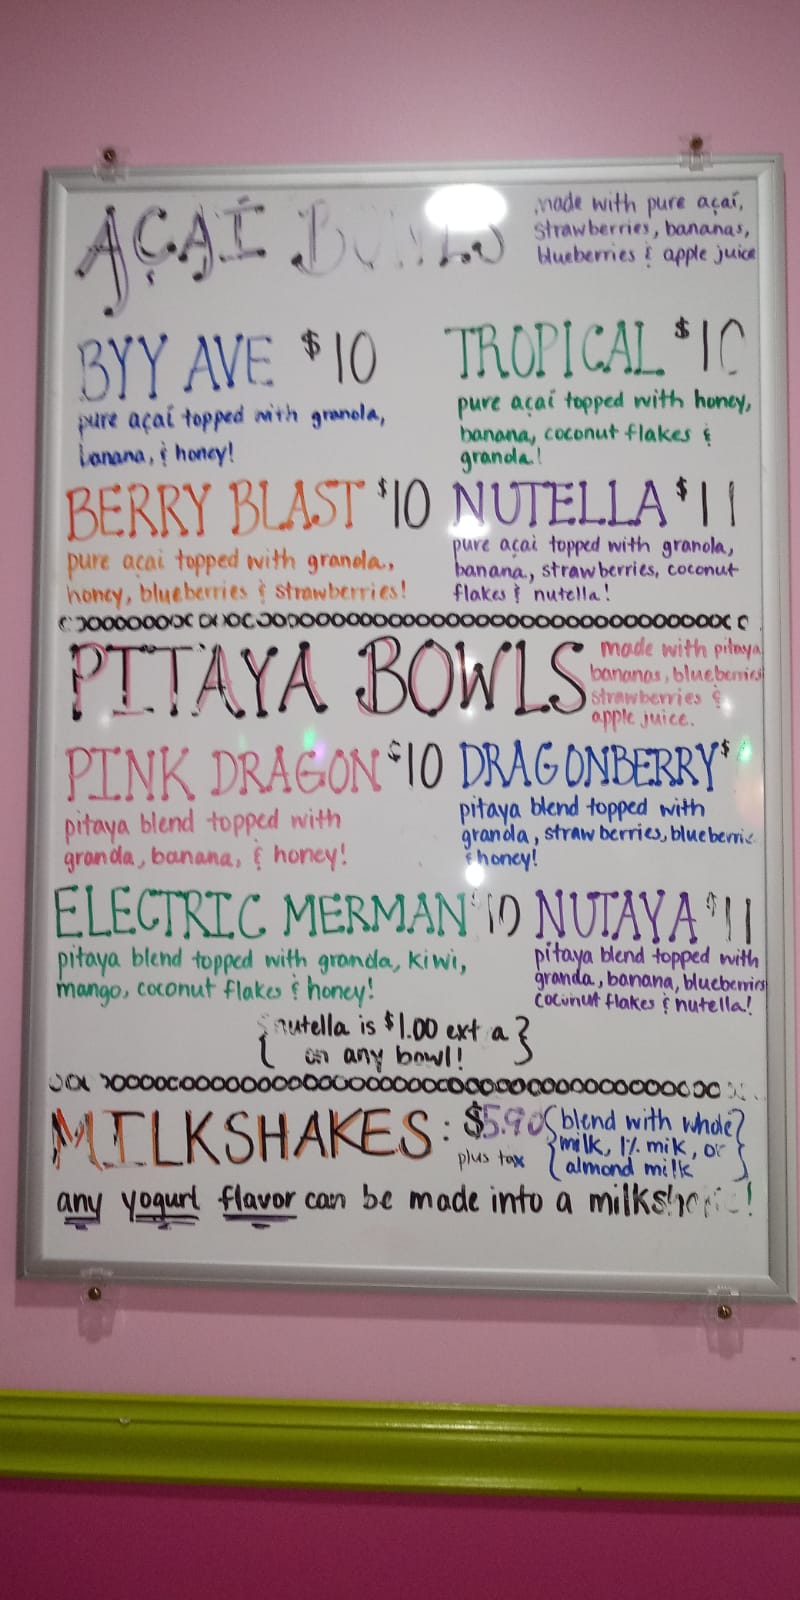 AÇAÍ BOWLS
made with pure açaí,
strawberries, bananas,
blueberries & apple juice
BYY AVE $10
pure açaí topped with granola,
banana, & honey!
TROPICAL $10
pure açaí topped with honey,
banana, coconut flakes &
granola!
BERRY BLAST $10
pure açai topped with granola,
honey, blueberries & strawberries!
NUTELLA $11
pure açai topped with granola,
banana, strawberries, coconut
flakes & nutella!
PITAYA BOWLS
made with pitaya
bananas, blueberries
strawberries &
apple juice.
PINK DRAGON $10
pitaya blend topped with
granola, banana, & honey!
DRAGONBERRY $
pitaya blend topped with
granola, strawberries, blueberrie
& honey!
ELECTRIC MERMAN $10
pitaya blend topped with granola, kiwi,
mango, coconut flakes & honey!
NUTAYA $11
pitaya blend topped with
granola, banana, blueberries
coconut flakes & nutella!
{nutella is $1.00 ext a}
on any bowl!
MILKSHAKES: $5.90
plus tax
{blend with whole}
milk, 1% milk, or
almond milk
any yogurt flavor can be made into a milkshake!